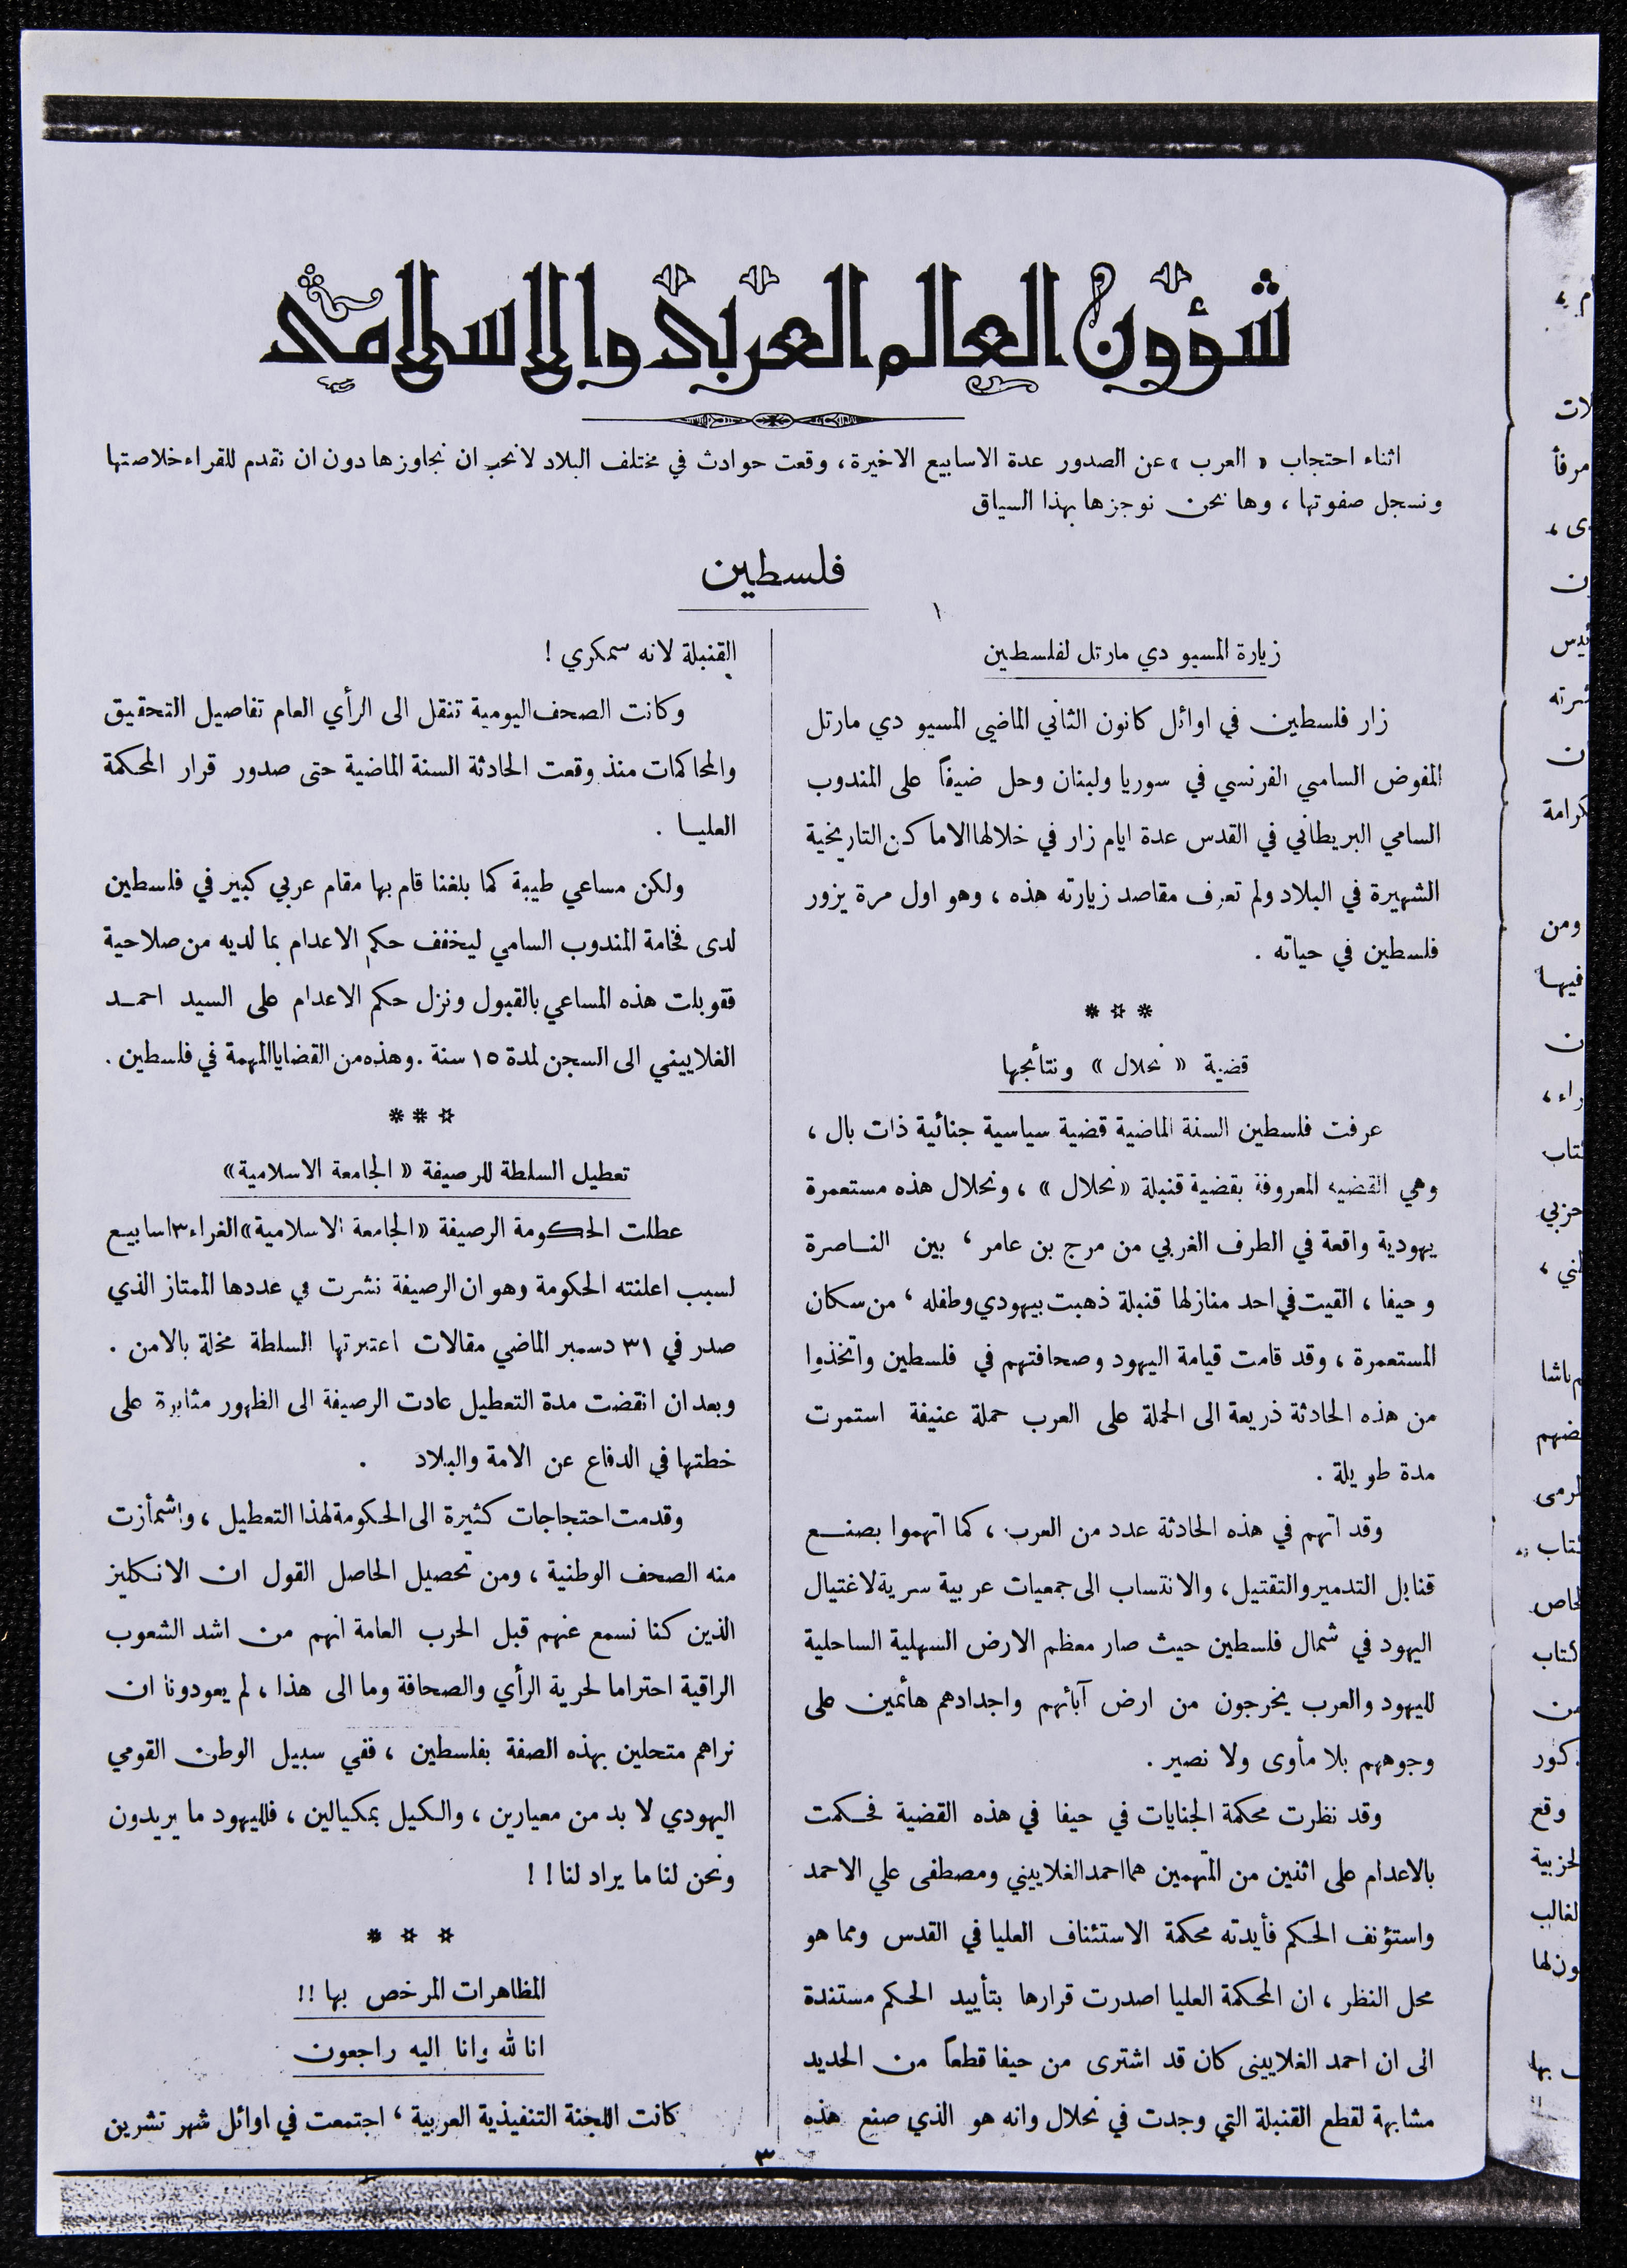 شؤون العالم العربي والاسلامي
اثناء احتجاب « العرب » عن الصدور عدة الاسابيع الاخيرة ، وقعت حوادث في مختلف البلاد لا نحب ان نجاوزها دون ان نقدم للقراء خلاصتها
ونسجل صفوتها ، وها نحن نوجزها بهذا السياق
فلسطين
١
زيارة المسيو دي مارتل لفلسطين
زار فلسطين في اوائل كانون الثاني الماضي المسيو دي مارتل
المفوض السامي الفرنسي في سوريا ولبنان وحل ضيفاً على المندوب
السامي البريطاني في القدس عدة ايام زار في خلالها الاماكن التاريخية
الشهيرة في البلاد ولم تعرف مقاصد زيارته هذه ، وهو اول مرة يزور
فلسطين في حياته .
* * *
قضية « نحلال » ونتائجها
عرفت فلسطين السنة الماضية قضية سياسية جنائية ذات بال ،
وهي القضية المعروفة بقضية قنبلة « نحلال » ، ونحلال هذه مستعمرة
يهودية واقعة في الطرف الغربي من مرج بن عامر ، بين الناصرة
وحيفا ، القيت في احد منازلها قنبلة ذهبت بيهودي وطفله ، من سكان
المستعمرة ، وقد قامت قيامة اليهود وصحافتهم في فلسطين واتخذوا
من هذه الحادثة ذريعة الى الحملة على العرب حملة عنيفة استمرت
مدة طويلة .
وقد اتهم في هذه الحادثة عدد من العرب ، كما اتهموا بصنع
قنابل التدمير والتقتيل ، والانتساب الى جمعيات عربية سرية لاغتيال
اليهود في شمال فلسطين حيث صار معظم الارض السهلية الساحلية
لليهود والعرب يخرجون من ارض آبائهم واجدادهم هائمين على
وجوههم بلا مأوى ولا نصير .
وقد نظرت محكمة الجنايات في حيفا في هذه القضية فحكمت
بالاعدام على اثنين من المتهمين هما احمد الغلاييني ومصطفى علي الاحمد
واستؤنف الحكم فأيدته محكمة الاستئناف العليا في القدس ومما هو
محل النظر ، ان المحكمة العليا اصدرت قرارها بتأييد الحكم مستندة
الى ان احمد الغلاييني كان قد اشترى من حيفا قطعاً من الحديد
مشابهة لقطع القنبلة التي وجدت في نحلال وانه هو الذي صنع هذه
القنبلة لانه سمكري !
وكانت الصحف اليومية تنقل الى الرأي العام تفاصيل التحقيق
والمحاكمات منذ وقعت الحادثة السنة الماضية حتى صدور قرار المحكمة
العليا .
ولكن مساعي طيبة كما بلغنا قام بها مقام عربي كبير في فلسطين
لدى فخامة المندوب السامي ليخفف حكم الاعدام بما لديه من صلاحية
فقوبلت هذه المساعي بالقبول ونزل حكم الاعدام على السيد احمد
الغلاييني الى السجن لمدة ١٥ سنة . وهذه من القضايا المهمة في فلسطين .
* * *
تعطيل السلطة للرصيفة « الجامعة الاسلامية »
عطلت الحكومة الرصيفة « الجامعة الاسلامية » الغراء ٣ اسابيع
لسبب اعلنته الحكومة وهو ان الرصيفة نشرت في عددها الممتاز الذي
صدر في ٣١ دسمبر الماضي مقالات اعتبرتها السلطة مخلة بالامن .
وبعد ان انقضت مدة التعطيل عادت الرصيفة الى الظهور مثابرة على
خطتها في الدفاع عن الامة والبلاد .
وقدمت احتجاجات كثيرة الى الحكومة لهذا التعطيل ، واشمأزت
منه الصحف الوطنية ، ومن تحصيل الحاصل القول ان الانكليز
الذين كنا نسمع عنهم قبل الحرب العامة انهم من اشد الشعوب
الراقية احتراما لحرية الرأي والصحافة وما الى هذا ، لم يعودونا ان
نراهم متحلين بهذه الصفة بفلسطين ، ففي سبيل الوطن القومي
اليهودي لا بد من معيارين ، والكيل بمكيالين ، فلليهود ما يريدون
ونحن لنا ما يراد لنا ! !
* * *
المظاهرات المرخص بها !!
انا لله وانا اليه راجعون
كانت اللجنة التنفيذية العربية ، اجتمعت في اوائل شهر تشرين
٣
لات
مرفأ
ن
ن
ومن
فيها
ن
حزبي
كتاب
كور
وقع
بها